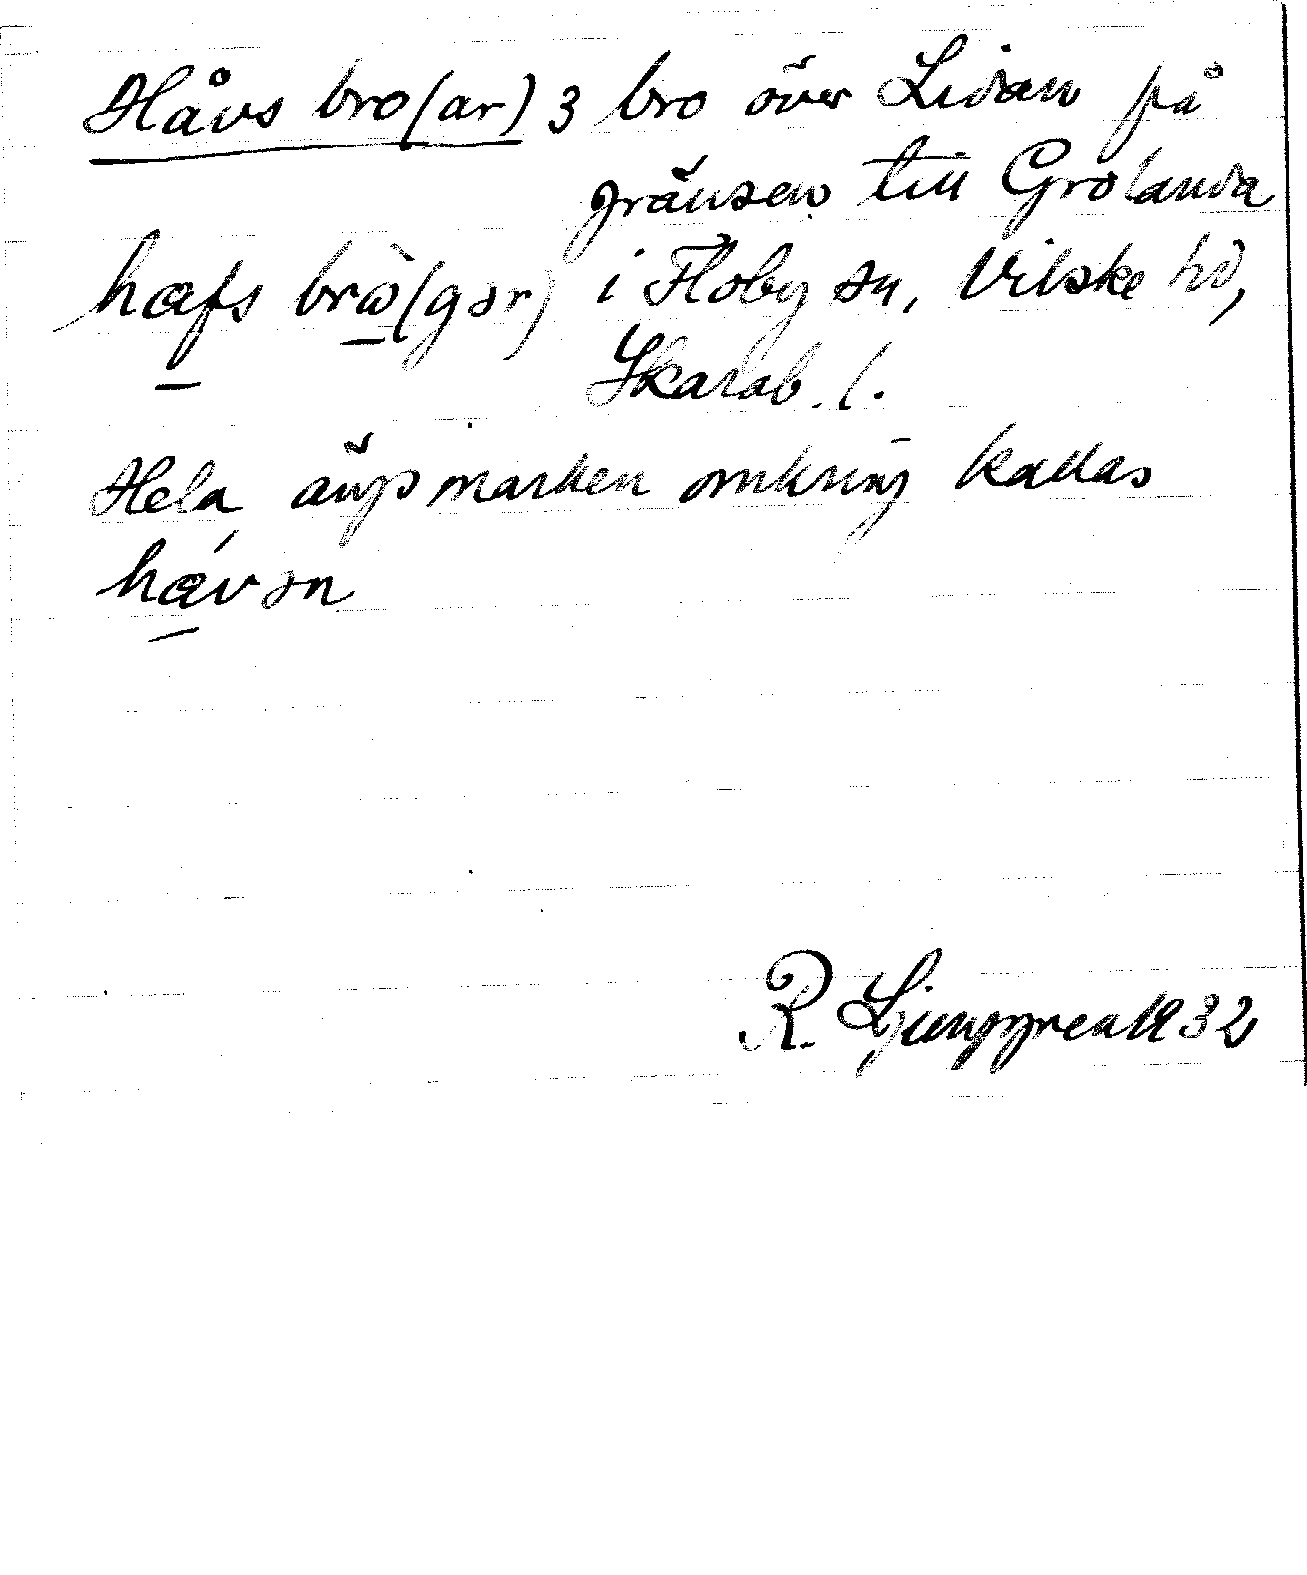 Håvs bro(ar) 3 bro över Lidan på
gränsen till Grolanda
hæfs brò(gər) i Floby sn, Vilske hd,
Skarab. l.
Hela ängsmarken omkring kallas
hǽvən
R. Ljunggren 1932